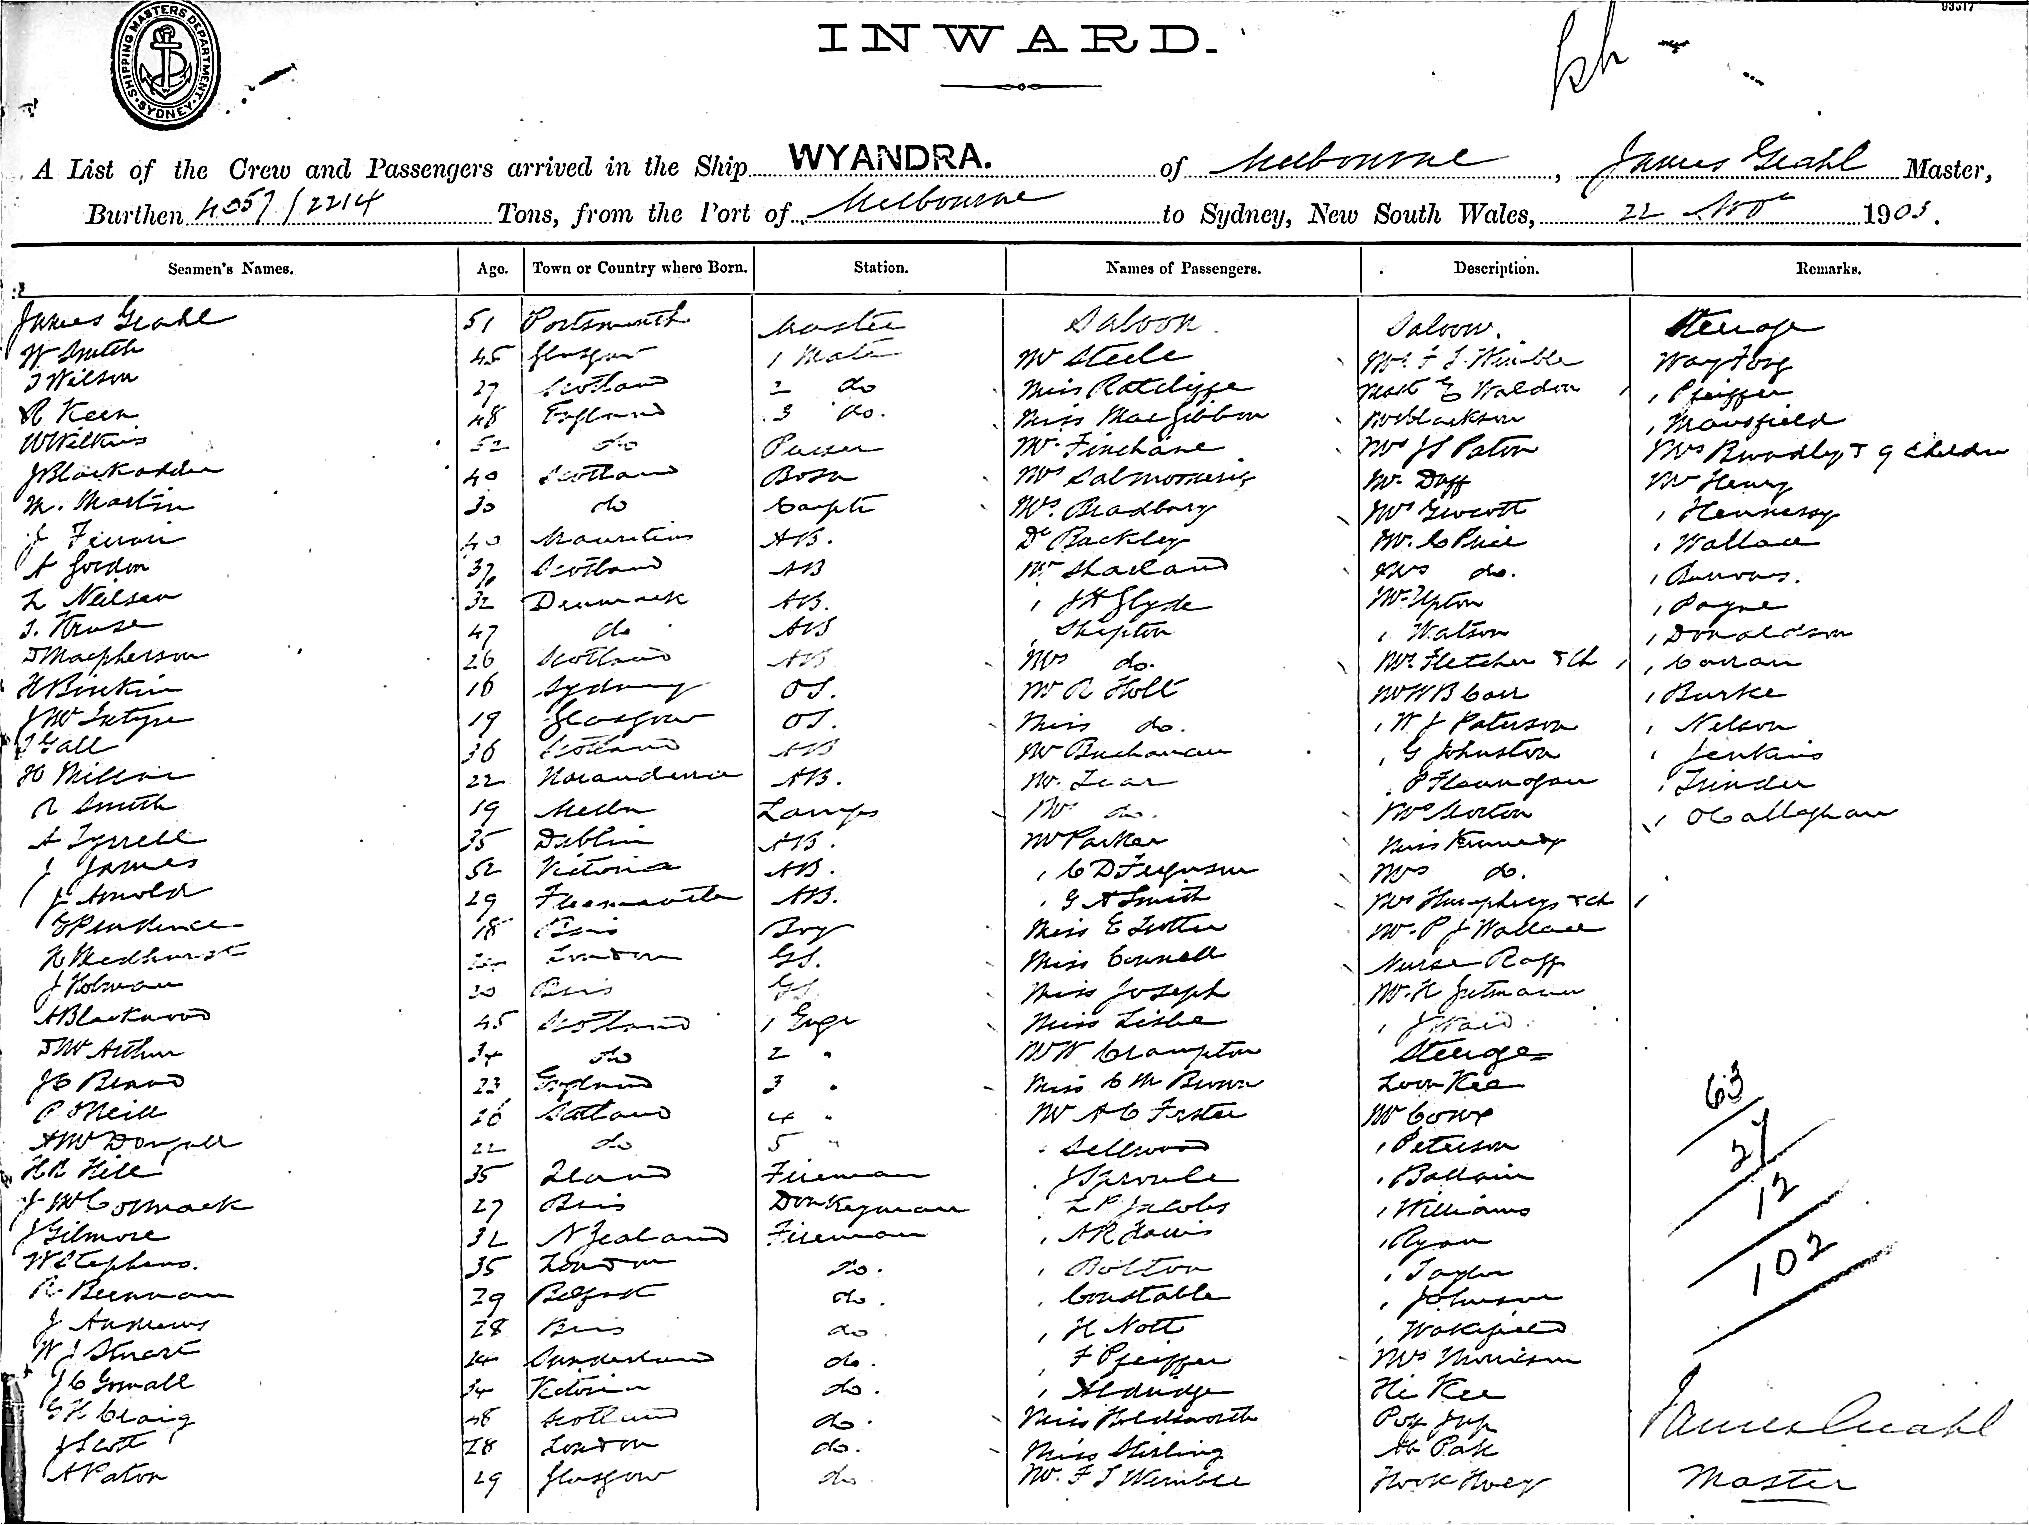 INWARD.
SHIPPING MASTERS DEPARTMENT SYDNEY
A List of the Crew and Passengers arrived in the Ship WYANDRA. of Melbourne, James Grahl Master,
Burthen 4057/2214 Tons, from the Port of Melbourne to Sydney, New South Wales, 22 Nov 1905.
Seamen's Names. Age. Town or Country where Born. Station. Names of Passengers. Description. Remarks.
James Grahl 51 Portsmouth Master Saloon. Saloon. Steerage
W Smith 45 Glasgow 1 Mate Mr Steele Mr F J Wimble Way Fong
J Wilson 27 Scotland 2 do Miss Ratcliffe Waldon , Pfeiffer
R Keen 48 England 3 do. Miss MacGibbon Blackson , Mansfield
W Wilkins 52 do Purser Mr Finchane Mrs J S Paton Mrs Bradley & 9 Children
J Blackadder 40 Scotland Bosn Mrs Mr Duff Mr Henry
M. Martin 30 do Carptr Mrs. Bradbury Mrs , Hennessy
J 40 Mauritius AB. Dr Backley Mr. C Price , Wallace
A Gordon 37 Scotland AB Mr Sharland Mrs do. , Burrows.
L Neilsen 32 Denmark AB. , J H Glyde Mr Upton , Payne
J. Kruse 47 do AB , Shipton , Watson , Donaldson
D Macpherson 26 Scotland AB Mrs do. Mrs Fletcher & Ch , , Curran
H Binkin 16 Sydney OS. Mr R Holt Mr W B Carr , Burke
J McIntyre 19 Glasgow OS. Miss do. , W J Paterson , Nelson
J Gall 36 Scotland AB Mr Buchanan , G Johnston , Jenkins
H 22 Naranderra AB. Mr. Lear , P Flannagan , Trinder
R Smith 19 Melbn Lamps Mrs do. Mrs Morton , O'Callaghan
A Tyrrell 35 Dublin AB. Mr Parker Miss Kennedy
J James 52 Victoria AB. , C D Ferguson Mrs do.
J Arnold 29 AB. , G A Smith Mrs Humphreys & ch ,
G Prudence 18 Bris Boy Miss E Trotter Mr. P J Wallace
H Medhurst London GS. Miss Connell Nurse Raff
J Holman 30 Bris GS. Miss Joseph Mr. H Gutmann
A Blackwood 45 Scotland 1 Engr Miss Lisbe , J Waid
D McArthur 34 do 2 " Mr W Crampton Steerage
J C 23 England 3 " Miss C M Brown Loon Kee
P O'Neill 26 Scotland 4 " Mr A C Foster Mr Cowx
A McDougall 22 do 5 " , Sellwood , Peterson
H R Hill 35 Fireman , J Sproule , Baldwin
J McCormack 27 Bris Donkeyman , L P Jacobs , Williams
J Gilmore 32 N Zealand Fireman , A R Harris , Ryan
W Stephens. 35 London do. , Bolton , Taylor
R Brennan 29 Belfast do. , Constable , Johnson
J Andrews 28 Bris do. , H Nott , Wakefield
W J Stuart 24 Sunderland do. , F Pfeiffer Mrs Morrison
J C Gomall 34 Victoria do. , Aldridge Hi Kee
G H Craig 48 Scotland do. Miss Holdsworth
J Scott 28 London do. Miss Stirling Ah Pak
A Paton 29 Glasgow do. Mr. F J Wimble Hook Hoey
63
27
12
102
James Grahl
Master